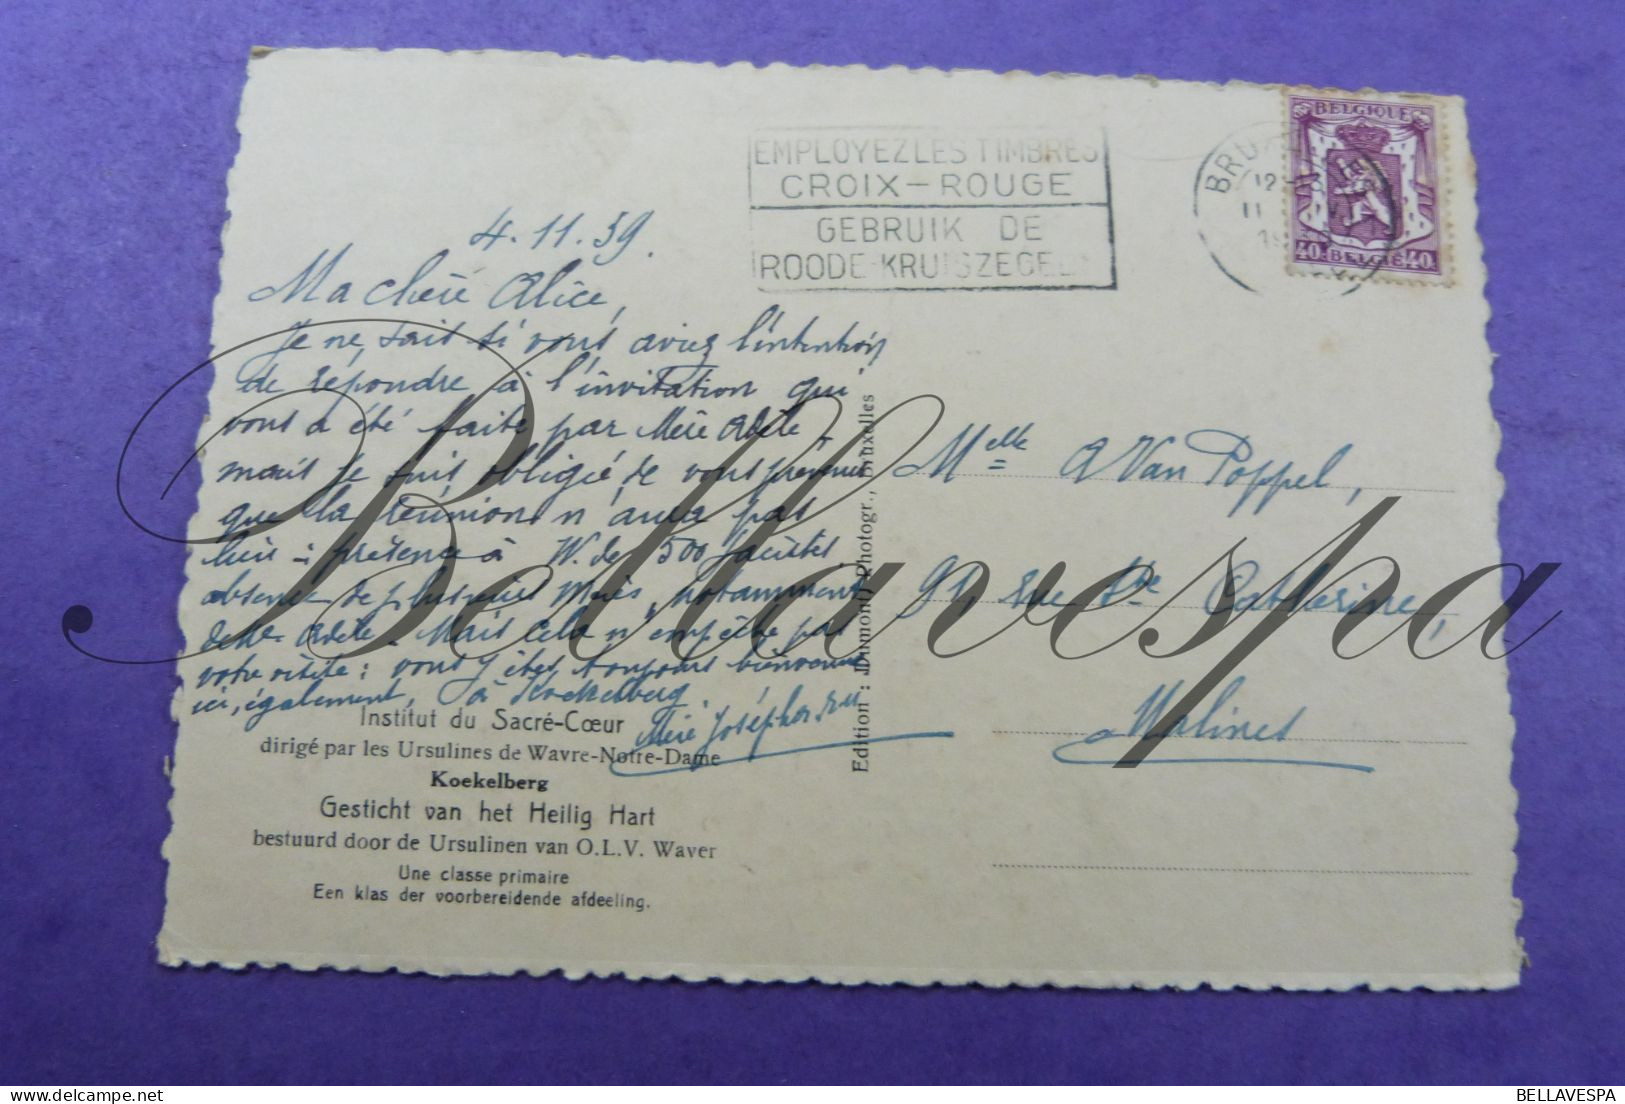 EMPLOYEZ LES TIMBRES
CROIX-ROUGE
GEBRUIK DE
ROODE-KRUISZEGEL
BELGIQUE
40 BELGIË 40
4.11.39.
Ma chère Alice,
Je ne sais si vous aviez l'intention
de répondre à l'invitation qui
vous a été faite par Mère Adèle,
mais je suis obligée de vous prévenir
que la réunion n'aura pas
lieu: présence à W. de 500
absence de plusieurs Mères, notamment
de Adèle. Mais cela n'empêche pas
votre visite: vous y êtes toujours bienvenue
ici, également, à Koekelberg.
Mère
Institut du Sacré-Cœur
dirigé par les Ursulines de Wavre-Notre-Dame
Koekelberg
Gesticht van het Heilig Hart
bestuurd door de Ursulinen van O.L.V. Waver
Une classe primaire
Een klas der voorbereidende afdeeling.
Edition: Dumont, Photogr., Bruxelles
Melle A Van Poppel,
91, rue Ste Catherine,
Malines
Bellavespa
BELLAVESPA